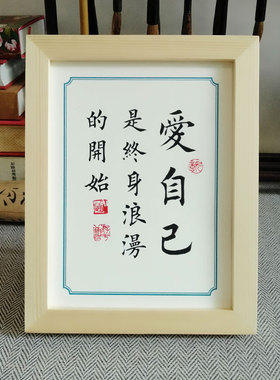 愛自己
是終身浪漫
的開始